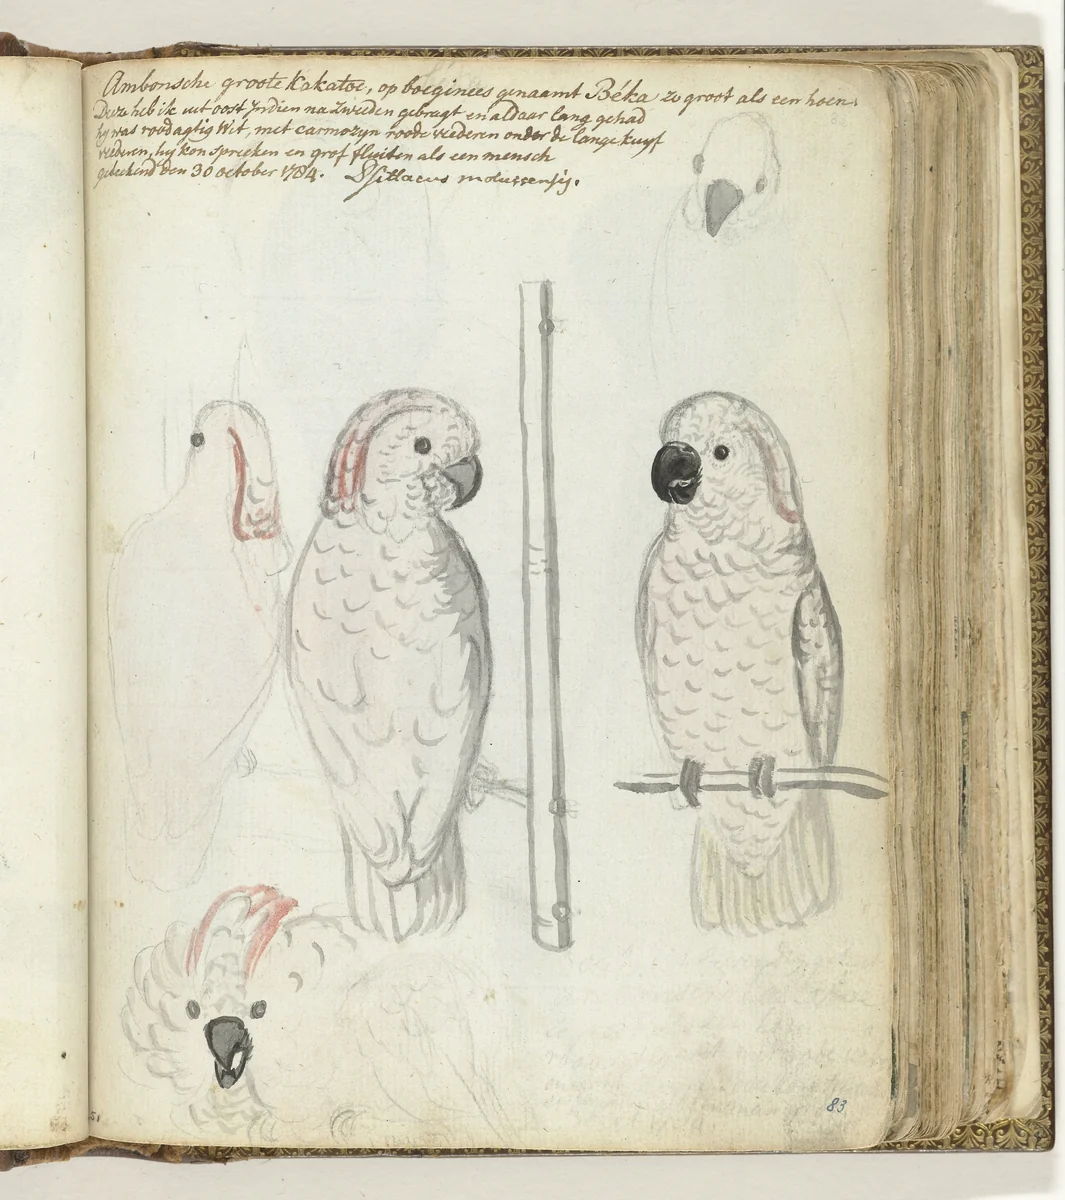 Ambonsche groote Kakatoe, op boeginees genaamt Béka zo groot als een hoen.
Deze heb ik uit oost Indien na Zweeden gebragt en aldaar lang gehad
hy was roodagtig Wit, met carmozyn roode veederen onder de lange kuyf
veederen, hy kon spreeken en grof fluiten als een mensch
geteekend den 30 october 1784. Psittacus moluccensis.
83